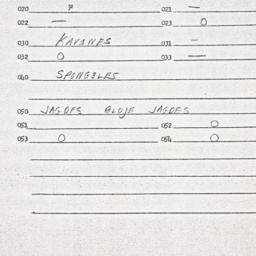 020 P 021 —
022 — 023 O
030 KAVANES 031 –
032 O 033 —
040 SPONGSLES
050 JAGDFS GLOJE JAGDES
051 052 O
053 O 054 O